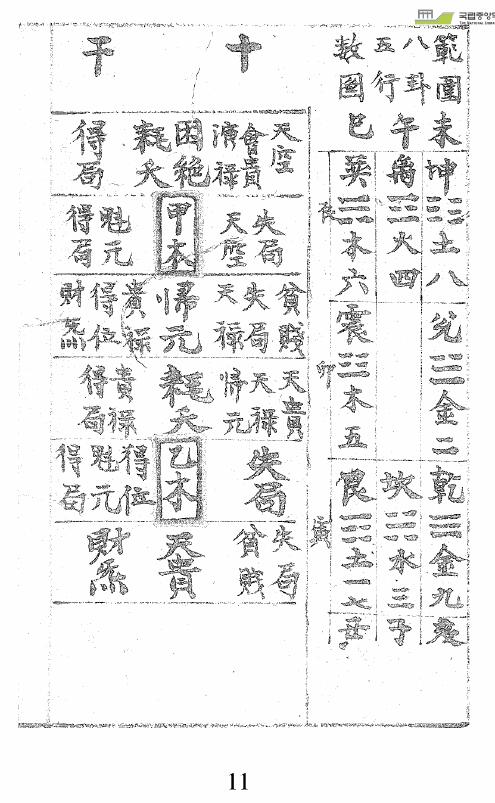 국립중앙
THE NATIONAL
範圍
八卦
五行
数图
未
午
巳
坤 ☷ 土 八
离 ☲ 火 四
巽 ☴ 木 六
辰
兊 ☱ 金 二
震 ☳ 木 五
卯
乾 ☰ 金 九
坎 ☵ 水 三
艮 ☶ 土 一 七
寅
亥
子
丑
十干
天空
會貴
演禄
困絶
耗夭
得局
失局
天空
甲木
魁元
得局
貧賤
失局
天禄
歸元
貴禄
得位
財炁
天貴
天禄
歸元
耗夭
貴禄
得局
失局
乙木
得位
魁元
得局
失局
貧賤
天貴
財炁
11